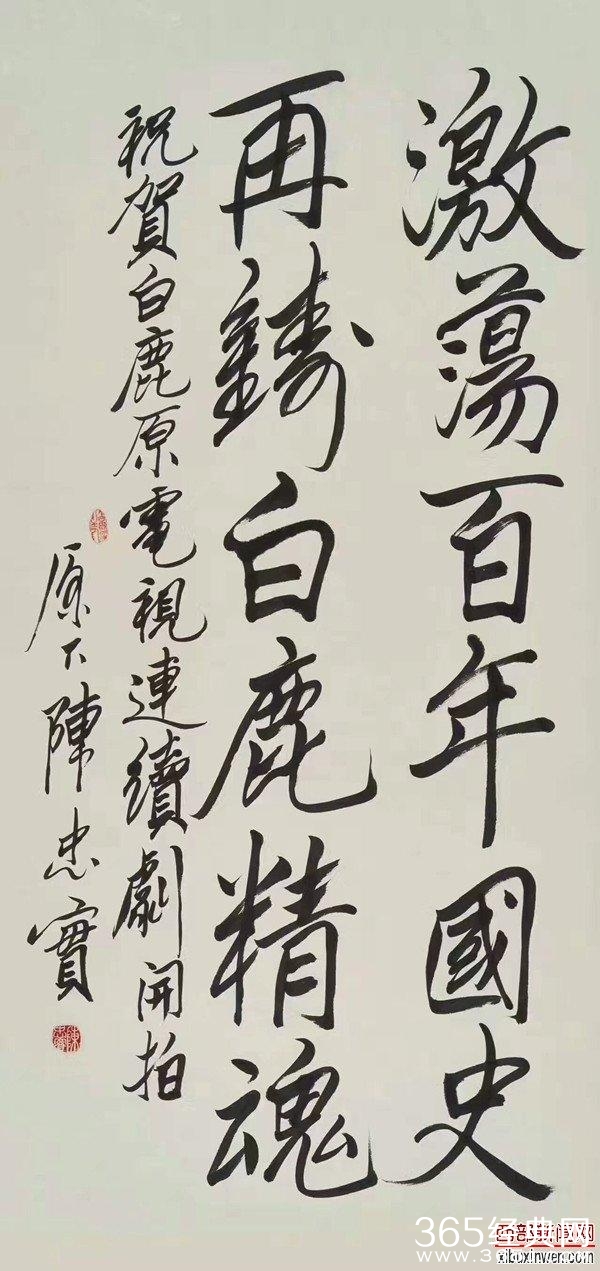 激蕩百年國史
再鑄白鹿精魂
祝賀白鹿原電視連續劇開拍
原下陳忠實
365经典网
西部新闻网
xibuxinwen.com